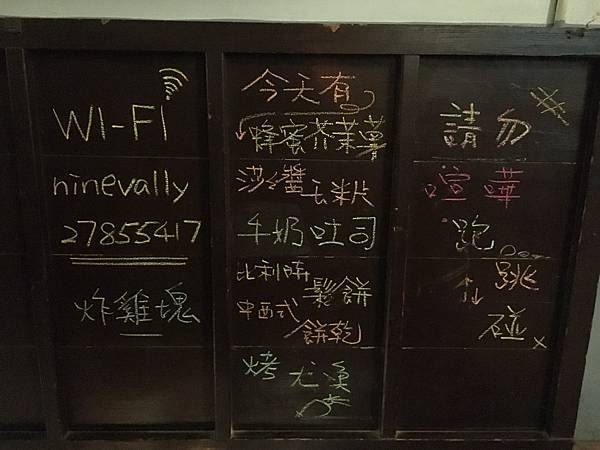 WI-FI
ninevally
27855417
炸雞塊
今天有
蜂蜜芥茉薯
莎莎醬玉米片
牛奶吐司
比利時
鬆餅
中西式
餅乾
烤尤魚
請勿
喧嘩
跑
跳
碰